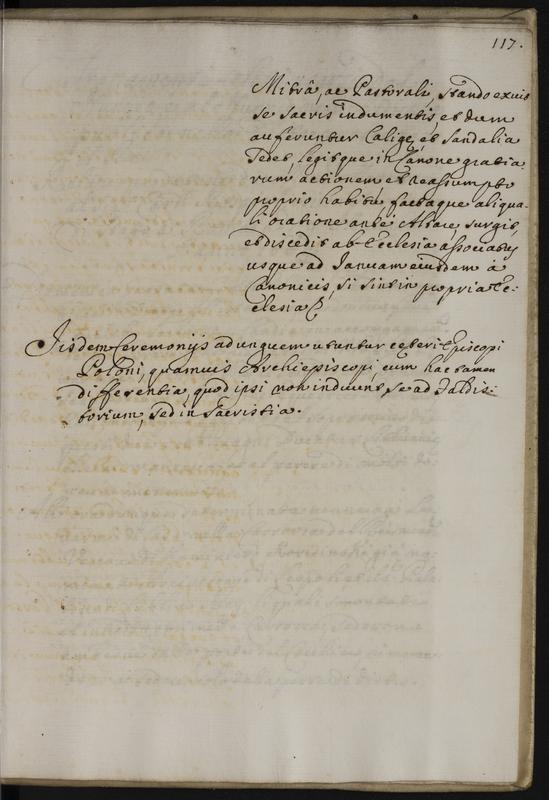 117.
Mitrâ, ac Pastorali, stando exuit
se sacris indumentis, et dum
auferuntur Caligę, et Sandalia
sedet, legitque in Canone gratia-
rum actionem et reassumpto
proprio habitu, factaque aliqua-
li oratione ante Altare, surgit,
et discedit ab Ecclesia associatus
usque ad Januam eiusdem à
Canonicis, si sint in propria Ec-
clesia
Jisdem Ceremonijs ad unguem utuntur cęteri Episcopi
Poloni, quamuis Archiepiscopi, cum hac tamen
differentia, quod ipsi non induunt se ad Faldis-
torium, sed in Sacristia.